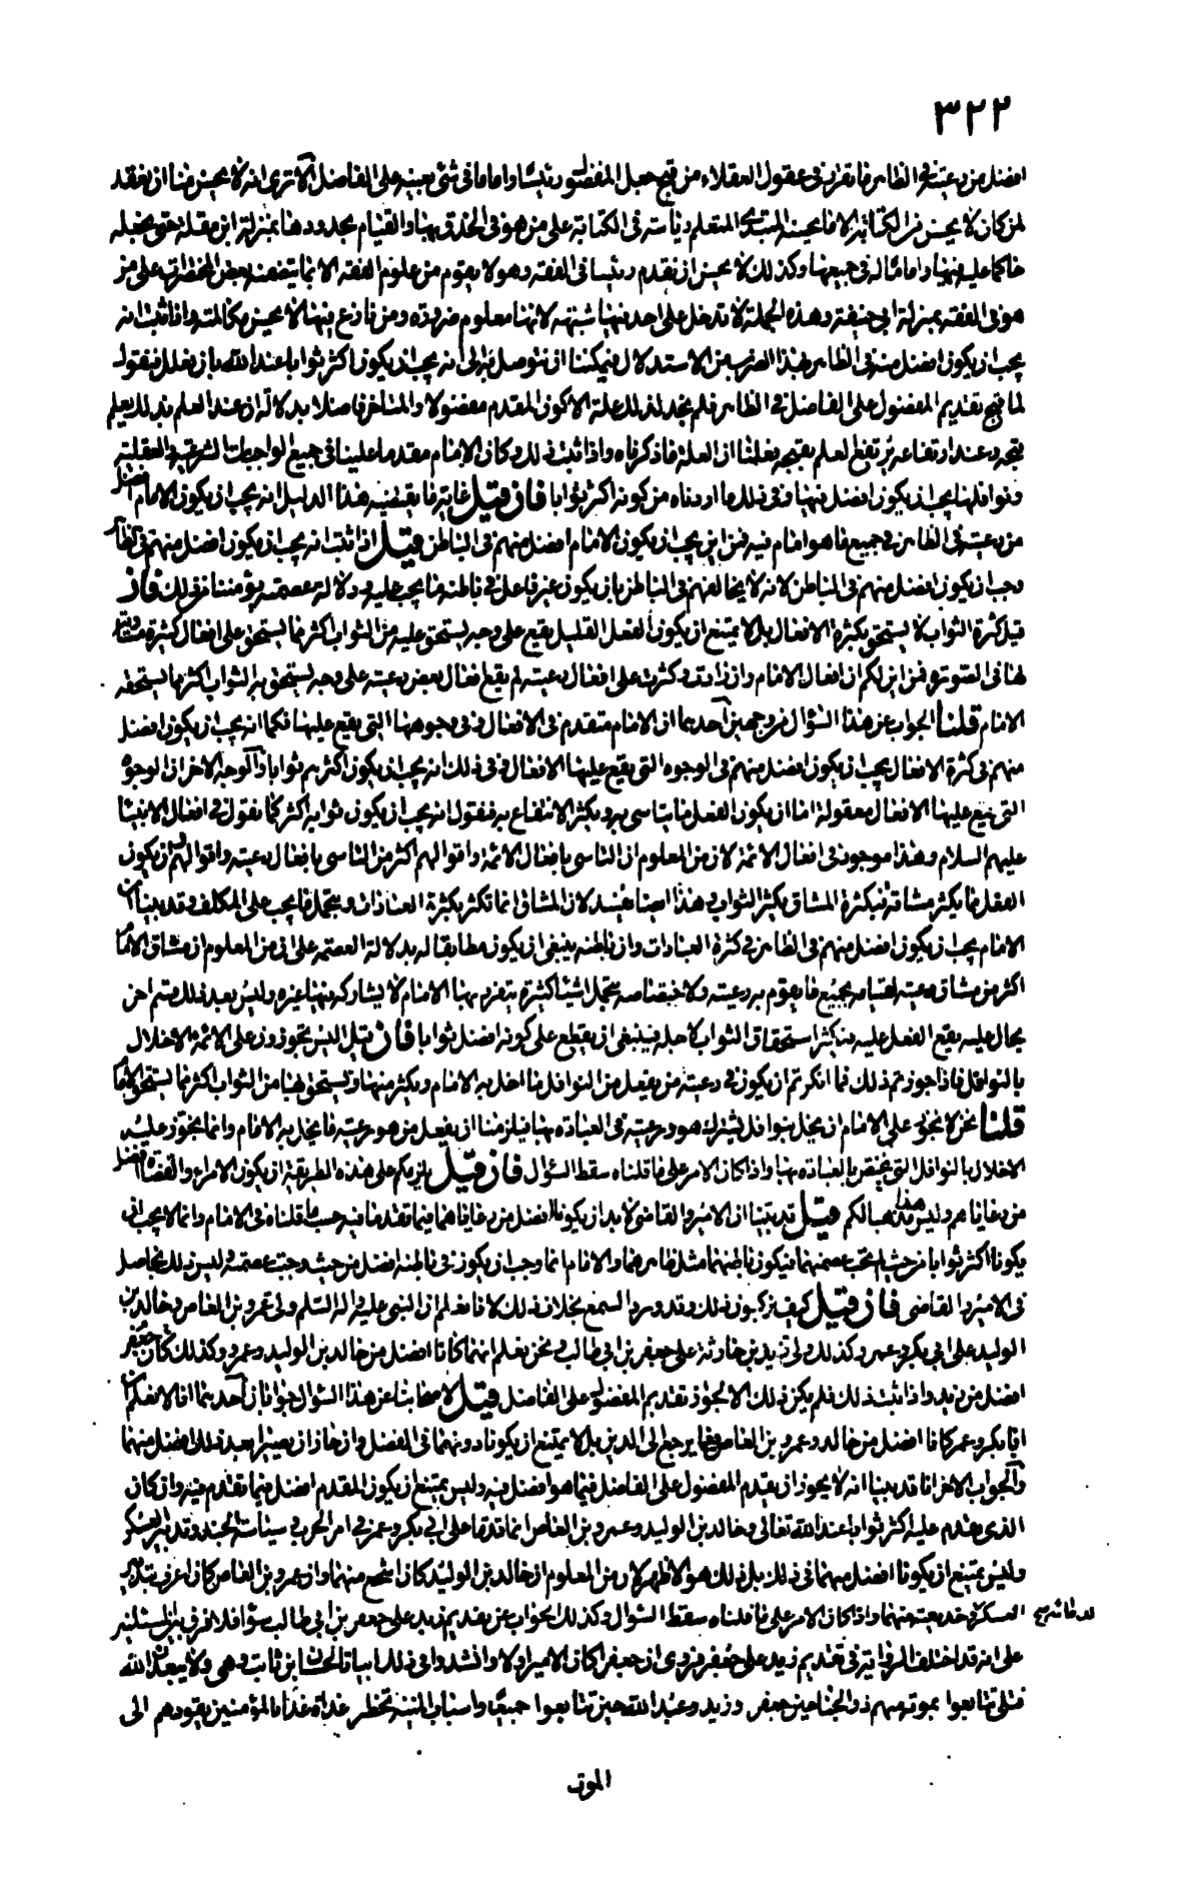 ٣٢٢
افضل من رعيته فى الظاهر ما تقرر فى عقول العقلاء من قبح جعل المفضول رئيسا واماما فى شئ بعينه على الفاضل الا ترى انه لا يحسن منا ان نعقد
لمن كان لا يحسن من الكتابة الا ما يحسنه المبتدى المتعلم رياسة فى الكتابة على من هو فى الحذق بها والقيام بحدودها بمنزلة ابن مقلة حتى نجعله
حاكما عليه فيها واماما له فى جميعها وكذلك لا يحسن ان نقدم رئيسا فى الفقه وهو لا يقوم من علوم الفقه الا بما يتضمنه بعض المختصرات على من
هو فى الفقه بمنزلة ابى حنيفة وهذه الجملة لا تدخل على احد فيها شبهة لانها معلومة ضرورة ومن نازع فيها لا يحسن مكالمته واذا ثبت انه
يجب ان يكون افضل منه فى الظاهر بهذا الضرب من الاستدلال فيمكننا ان نتوصل به الى انه يجب ان يكون اكثر ثوابا عند الله بان نعلل فنقول
لما قبح تقديم المفضول على الفاضل فى الظاهر فلم نجد لذلك علة الا كون المقدم مفضولا والمتاخر فاضلا بدلالة ان عند العلم بذلك يعلم
قبحه وعند ارتفاعه يرتفع العلم بقبحه فعلمنا ان العلة ما ذكرناه واذا ثبت ذلك وكان الامام مقدما علينا فى جميع الواجبات الشرعية والعقلية
ونوافلها يجب ان يكون افضل فيها وفى ذلك ما اردناه من كونه اكثر ثوابا فان قيل غاية ما يقتضيه هذا الدليل انه يجب ان يكون الامام افضل
من رعيته فى الظاهر فى جميع ما هو امام فيه فمن اين يجب ان يكون الامام افضل منهم فى الباطن قيل اذا ثبت انه يجب ان يكون افضل منهم فى الظاهر
وجب ان يكون افضل منهم فى الباطن لانه لا يخالفهم فى الباطن بان يكون غير فاعل فى باطنه ما يجب عليه ودلالة عصمته تؤمننا من ذلك فان
قيل كثرة الثواب لا يستحق بكثرة الافعال بل لا يمتنع ان يكون الفعل القليل يقع على وجه يستحق عليه من الثواب اكثر مما يستحق على افعال كثيرة مساوية
لها فى الصورة فمن اين لكم ان افعال الامام وان زادت وكثرت على افعال رعيته لم يقع افعال بعض رعيته على وجه يستحق به الثواب اكثر مما يستحقه
الامام قلنا الجواب عن هذا السؤال من وجهين احدهما ان الامام متقدم فى الافعال وفى وجوهها التى يقع عليها فكما انه يجب ان يكون افضل
منهم فى كثرة الافعال يجب ان يكون افضل منهم فى الوجوه التى يقع عليها الافعال وفى ذلك انه يجب ان يكون اكثرهم ثوابا والوجه الاخر ان الوجوه
التى يقع عليها الافعال معقولة اما ان يكون الفعل مما يتاسى به ويكثر الانتفاع به فنقول انه يجب ان يكون ثوابه اكثر كما نقول فى افعال الانبياء
عليهم السلام وهذا موجود فى افعال الائمة لان من المعلوم ان التاسى بافعال الائمة واقوالهم اكثر من التاسى بافعال رعيته واقوالهم او ان يكون
الفعل مما يكثر مشاقه فبكثرة المشاق يكثر الثواب وهذا ايضا فيه لان المشاق انما تكثر بكثرة العبادات وبتحمل ما يجب على المكلف وقد بينا ان
الامام يجب ان يكون افضل منهم فى الظاهر فى كثرة العبادات وان باطنه ينبغى ان يكون مطابقا له بدلالة العصمة على ان من المعلوم ان مشاق الامام
اكثر من مشاق رعيته لقيامه بجميع ما يقوم به رعيته ولاختصاصه بتحمل اشياء كثيرة يتفرد بها الامام لا يشاركه فيها غيره وليس بعد ذلك قسم اخر
يحال عليه يقع الفعل عليه فيكثر استحقاق الثواب لاجله فينبغى ان يقطع على كونه افضل ثوابا فان قيل اليس تجوزون على الائمة الاخلال
بالنوافل فاذا جوزتم ذلك فما انكرتم ان يكون فى رعيته من يفعل من النوافل ما اخل به الامام ويكثر منها ويستحق بها من الثواب اكثر مما يستحق الامام
قلنا نحن لا نجوز على الامام ان يخل بنوافل يشترك هو ورعيته فى العبادة بها فيلزمنا ان يفعل من هو رعيته ما يخل به الامام وانما نجوز عليه
الاخلال بالنوافل التى يختص بالعبادة بها واذا كان الامر على ما قلناه سقط السؤال فان قيل يلزمكم على هذه الطريقة ان يكون الامراء والقضاة افضل
من رعاياهم وليس هذا مذهبا لكم قيل قد بينا ان الامير والقاضى لا بد ان يكونا افضل من رعاياهما فيما تقدما فيه حسب ما قلناه فى الامام وانما لا يجب ان
يكونا اكثر ثوابا من حيث لم تجب عصمتهما فيكون باطنهما مثل ظاهرهما والامام انما وجب ان يكون فى باطنه افضل من حيث وجبت عصمته وليس ذلك بحاصل
فى الامير والقاضى فان قيل كيف تركبون ذلك وقد ورد السمع بخلاف ذلك لانا نعلم ان النبى عليه واله السلم ولى عمرو بن العاص وخالد بن
الوليد على ابى بكر وعمر وكذلك ولى زيد بن حارثة على جعفر بن ابى طالب ونحن نعلم انهما كانا افضل من خالد بن الوليد وعمرو وكذلك كان جعفر
افضل من زيد واذا ثبت ذلك فلم يكن ذلك الا لجواز تقديم المفضول على الفاضل قيل لاصحابنا عن هذا السؤال جوابان احدهما انا لا نعلم ان
ابا بكر وعمر كانا افضل من خالد وعمرو بن العاص فيما يرجع الى الدين بل لا يمتنع ان يكونا دونهما فى الفضل وان جاز ان يصيرا بعد ذلك افضل منهما
والجواب الاخر انا قد بينا انه لا يجوز ان يقدم المفضول على الفاضل فيما هو افضل فيه وليس يمتنع ان يكون المقدم افضل فيما تقدم فيه وان كان
الذى يقدم عليه اكثر ثوابا عند الله تعالى وخالد بن الوليد وعمرو بن العاص انما قدما على ابى بكر وعمر فى امر الحرب وسياسة الجند وتدابير العسكر
وليس يمتنع ان يكونا افضل منهما فى ذلك بل ذلك هو الاظهر لان من المعلوم ان خالد بن الوليد كان اشجع منهما وان عمرو بن العاص كان اعرف بتدبير
العسكر وخديعته منهما واذا كان الامر على ما قلناه سقط السؤال وكذلك الجواب عن تقديم زيد على جعفر بن ابى طالب سؤالا لا فرق بين المسئلتين
على انه قد اختلف الرواية فى تقديم زيد على جعفر فروى ان جعفرا كان الامير اولا وانشدوا فى ذلك ابياتا لحسان بن ثابت وهى ولا يبعدن الله
قتلى تتابعوا بموتة منهم ذو الجناحين جعفر وزيد وعبد الله حين تتابعوا جميعا واسباب المنية تخطر غداة غدا بالمؤمنين يقودهم الى
الموت